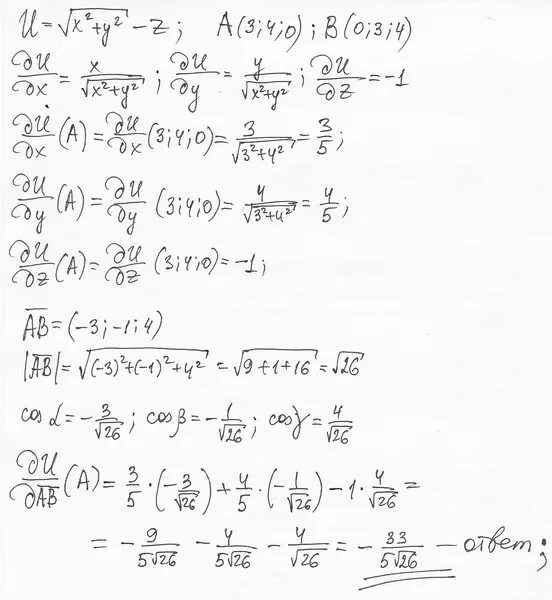 U = √(x²+y²) - z; A(3;4;0); B(0;3;4)
∂U/∂x = x/√(x²+y²); ∂U/∂y = y/√(x²+y²); ∂U/∂z = -1
∂U/∂x (A) = ∂U/∂x (3;4;0) = 3/√(3²+4²) = 3/5;
∂U/∂y (A) = ∂U/∂y (3;4;0) = 4/√(3²+4²) = 4/5;
∂U/∂z (A) = ∂U/∂z (3;4;0) = -1;
A̅B̅ = (-3;-1;4)
|A̅B̅| = √((-3)²+(-1)²+4²) = √(9+1+16) = √26
cos α = -3/√26; cos β = -1/√26; cos γ = 4/√26
∂U/∂A̅B̅ (A) = 3/5 · (-3/√26) + 4/5 · (-1/√26) - 1 · 4/√26 =
= -9/5√26 - 4/5√26 - 4/√26 = -33/5√26 - ответ;